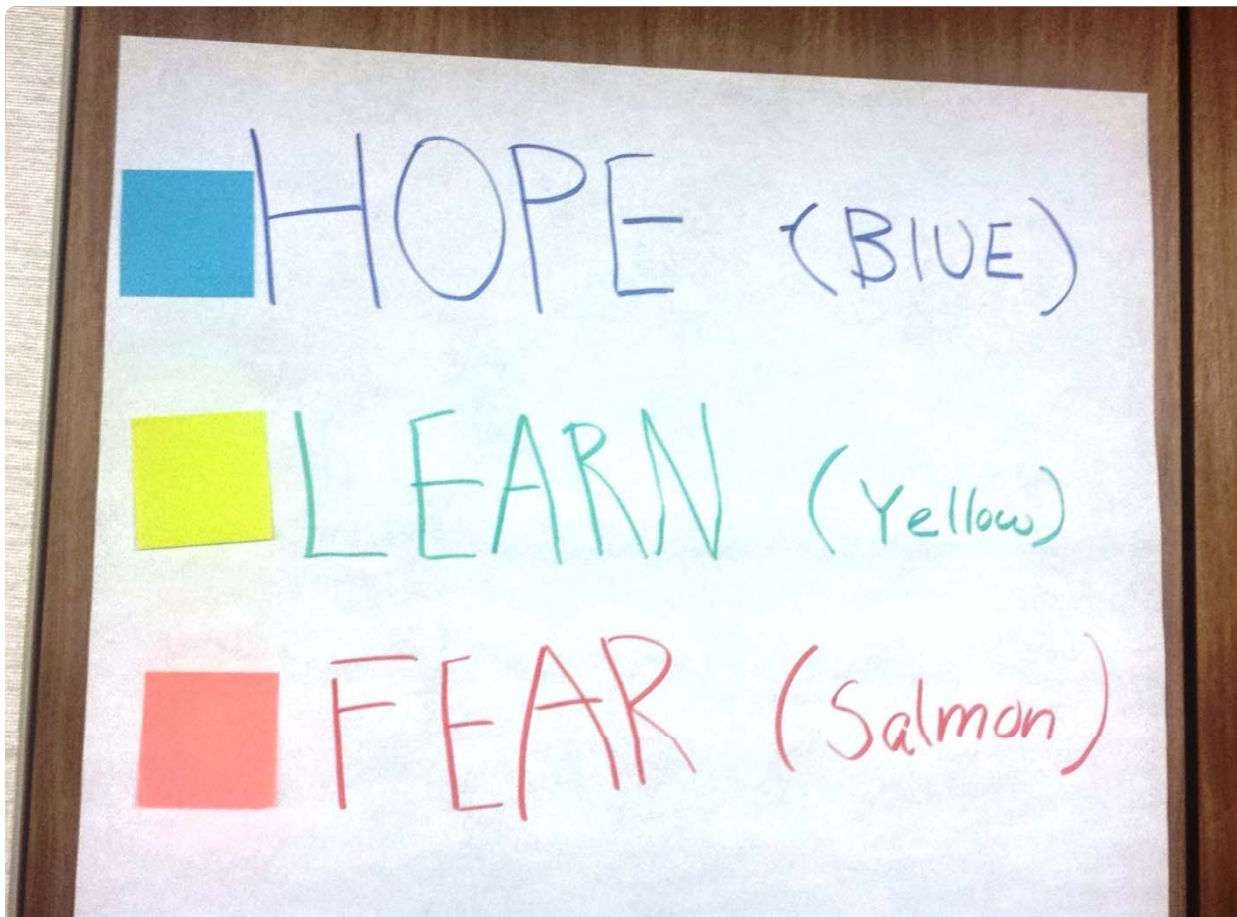 HOPE (BLUE)
LEARN (Yellow)
FEAR (Salmon)